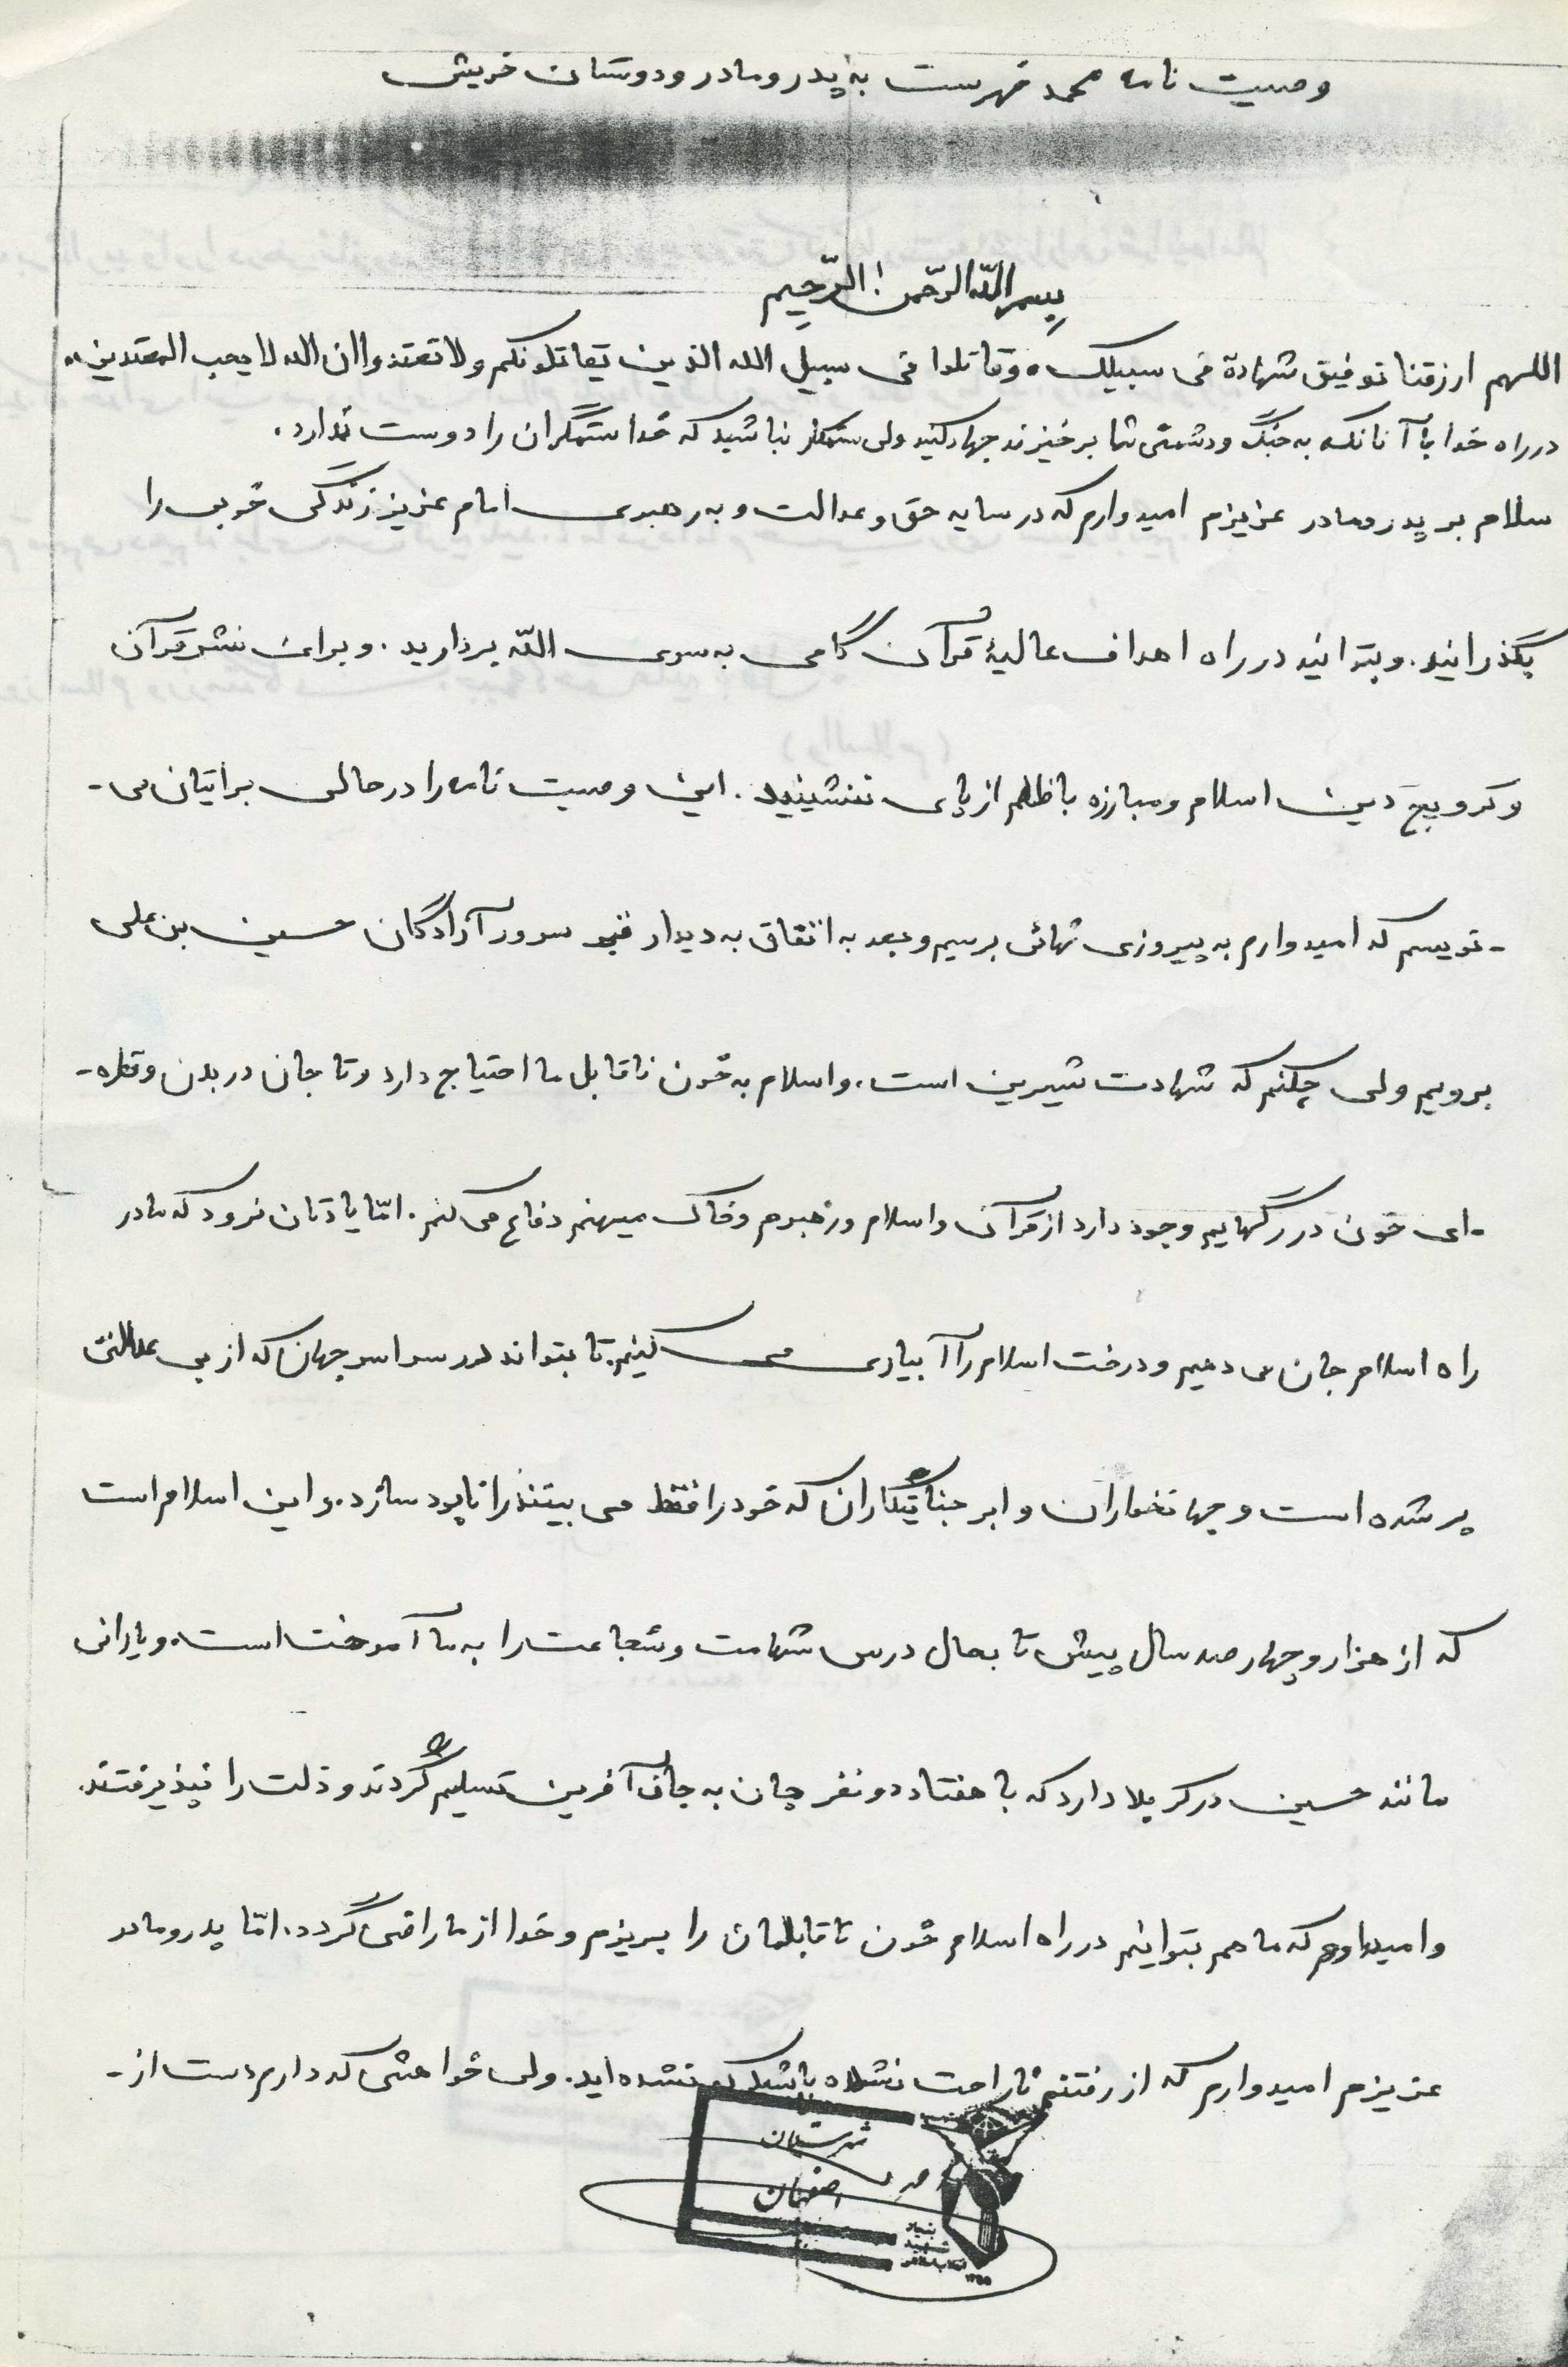 وصیت نامه محمد فهرست به پدر و مادر و دوستان خویش
بسم الله الرحمن الرحیم
اللهم ارزقنا توفیق شهادة فی سبیلک، وقاتلوا فی سبیل الله الذین یقاتلونکم ولا تعتدوا ان الله لا یحب المعتدین.
در راه خدا با آنانکه به جنگ و دشمنی شما برخیزند جهاد کنید ولی ستمکار نباشید که خدا ستمگران را دوست ندارد.
سلام بر پدر و مادر عزیزم امیدوارم که در سایه حق و عدالت و به رهبری امام عزیز زندگی خوبی را
بگذرانید. و بتوانید در راه اهداف عالیهٔ قرآن گامی به سوی الله بردارید. و برای نشر قرآن
و ترویج دین اسلام و مبارزه با ظلم از پای ننشینید. این وصیت نامه را در حالی برایتان می-
-نویسم که امیدوارم به پیروزی نهائی برسیم و بعد به اتفاق به دیدار قبر سرور آزادگان حسین بن علی
برویم ولی چکنم که شهادت شیرین است. و اسلام به خون ناقابل ما احتیاج دارد و تا جان در بدن و قطره-
-ای خون در رگهایم وجود دارد از قرآن و اسلام و رهبرم و خاک میهنم دفاع می کنم. امّا یادتان نرود که ما در
راه اسلام جان می دهیم و درخت اسلام را آبیاری می کنیم. تا بتواند در سراسر جهان که از بی عدالتی
پر شده است و جهانخواران و ابر جنایتکاران که خود را فقط می بینند را نابود سازد. و این اسلام است
که از هزار و چهارصد سال پیش تا بحال درس شهامت و شجاعت را به ما آموخت است. و یارانی
مانند حسین در کربلا دارد که با هفتاد دو نفر جان به جان آفرین تسلیم گردند و ذلت را نپذیرفتند.
و امیدوارم که ما هم بتوانیم در راه اسلام خون ناقابلمان را بریزم و خدا از ما راضی گردد. امّا پدر و مادر
عزیزم امیدوارم که از رفتنم ناراحت نشده باشید که نشده اید. ولی خواهشی که دارم دست از-
شهرستان
اصفهان
بنیاد
شهید
انقلاب اسلامی